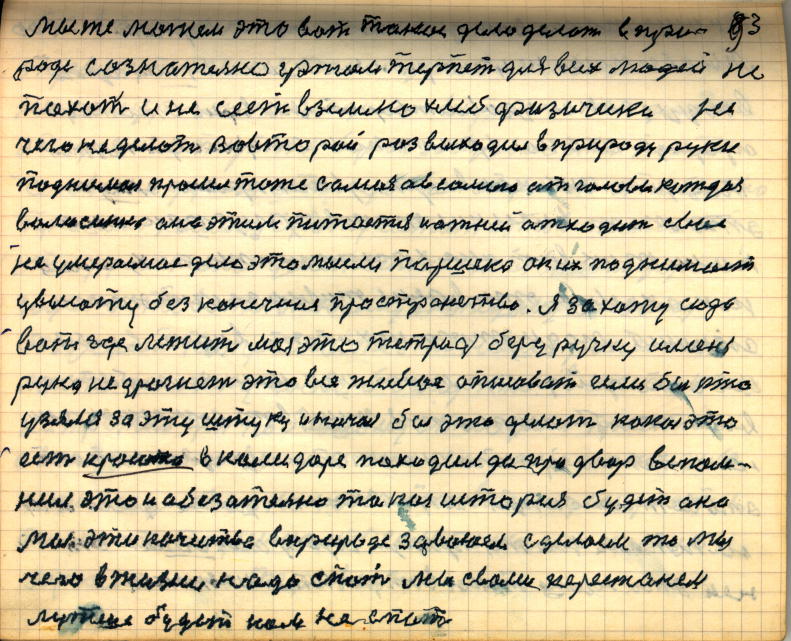 мы же можем это вот такое дело делат в при- 93
роде сознателно этом терпет для всех людей не
пахот и не сеет в землю хлеб физически не
чего не делот вовторой раз выходил в природу руки
поднимал просил тоже самая авсамого ат головы каждая
волосинка она этим питается нажней атходит свае
не умераемае дело это мысли паришка а их поднимает
увысоту без конечная пространство. Я захожу сюда
вот где лежит моя это тетрад беру ручку именя
рука не дрогнет это все живое описоват если бы кто
узялся за эту штуку иначал бы это делат какое это
ест в колидоре походил да про двор вспом-
нил это и абезателно такая история будет ана
мы эти качества в природе завоюем сделаем то мы
чего в жизни надо спат мы своим перестанем
лутше будет нам не спат